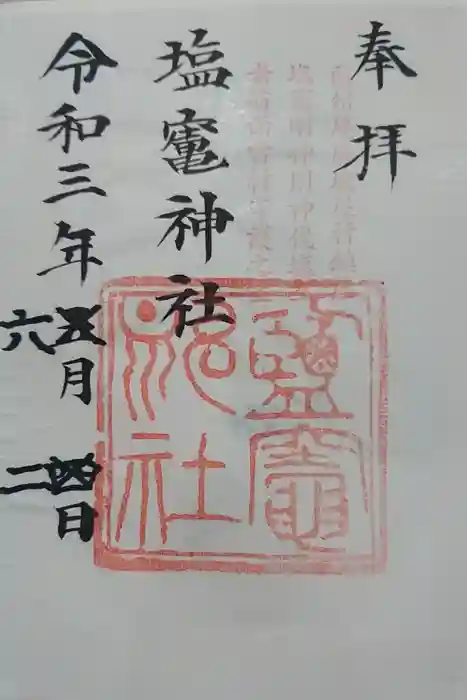 奉拝
塩竈神社
令和三年五月四日
六
二
鹽竈
神社